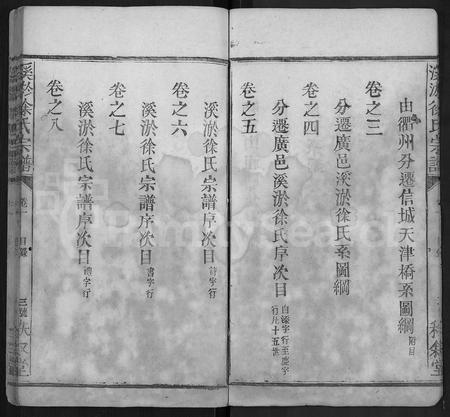 由衢州分遷信城天津橋系圖綱 附目
卷之三
分遷廣邑溪淤徐氏系圖綱
卷之四
分遷廣邑溪淤徐氏序次目
卷之五
溪淤徐氏宗譜序次目 詩字行
卷之六
溪淤徐氏宗譜序次目 書字行
卷之七
溪淤徐氏宗譜序次目 禮字行
卷之八
溪淤徐氏宗譜
卷一
目錄